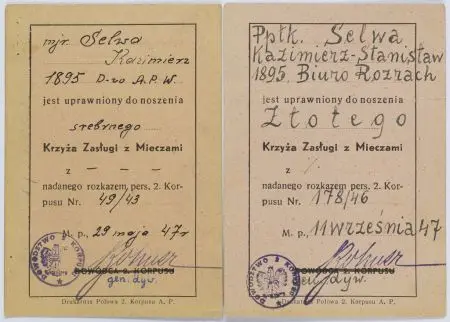 mjr. Selwa
Kazimierz
1895 D-wo A.P.W.
jest uprawniony do noszenia
srebrnego
Krzyża Zasługi z Mieczami
z — — —
nadanego rozkazem pers. 2. Kor-
pusu Nr. 49/43
M. p., 29 maja 47r
DOWÓDCA 2. KORPUSU
gen. dyw.
DOWÓDZTWO 2 KORPUSU
Drukarnia Polowa 2. Korpusu A. P.
Ppłk. Selwa
Kazimierz-Stanisław
1895. Biuro Rozrach
jest uprawniony do noszenia
Złotego
Krzyża Zasługi z Mieczami
z
nadanego rozkazem pers. 2. Kor-
pusu Nr. 178/46
M. p., 11 września 47
DOWÓDCA 2. KORPUSU
gen. dyw.
DOWÓDZTWO 2 KORPUSU
Drukarnia Polowa 2. Korpusu A. P.